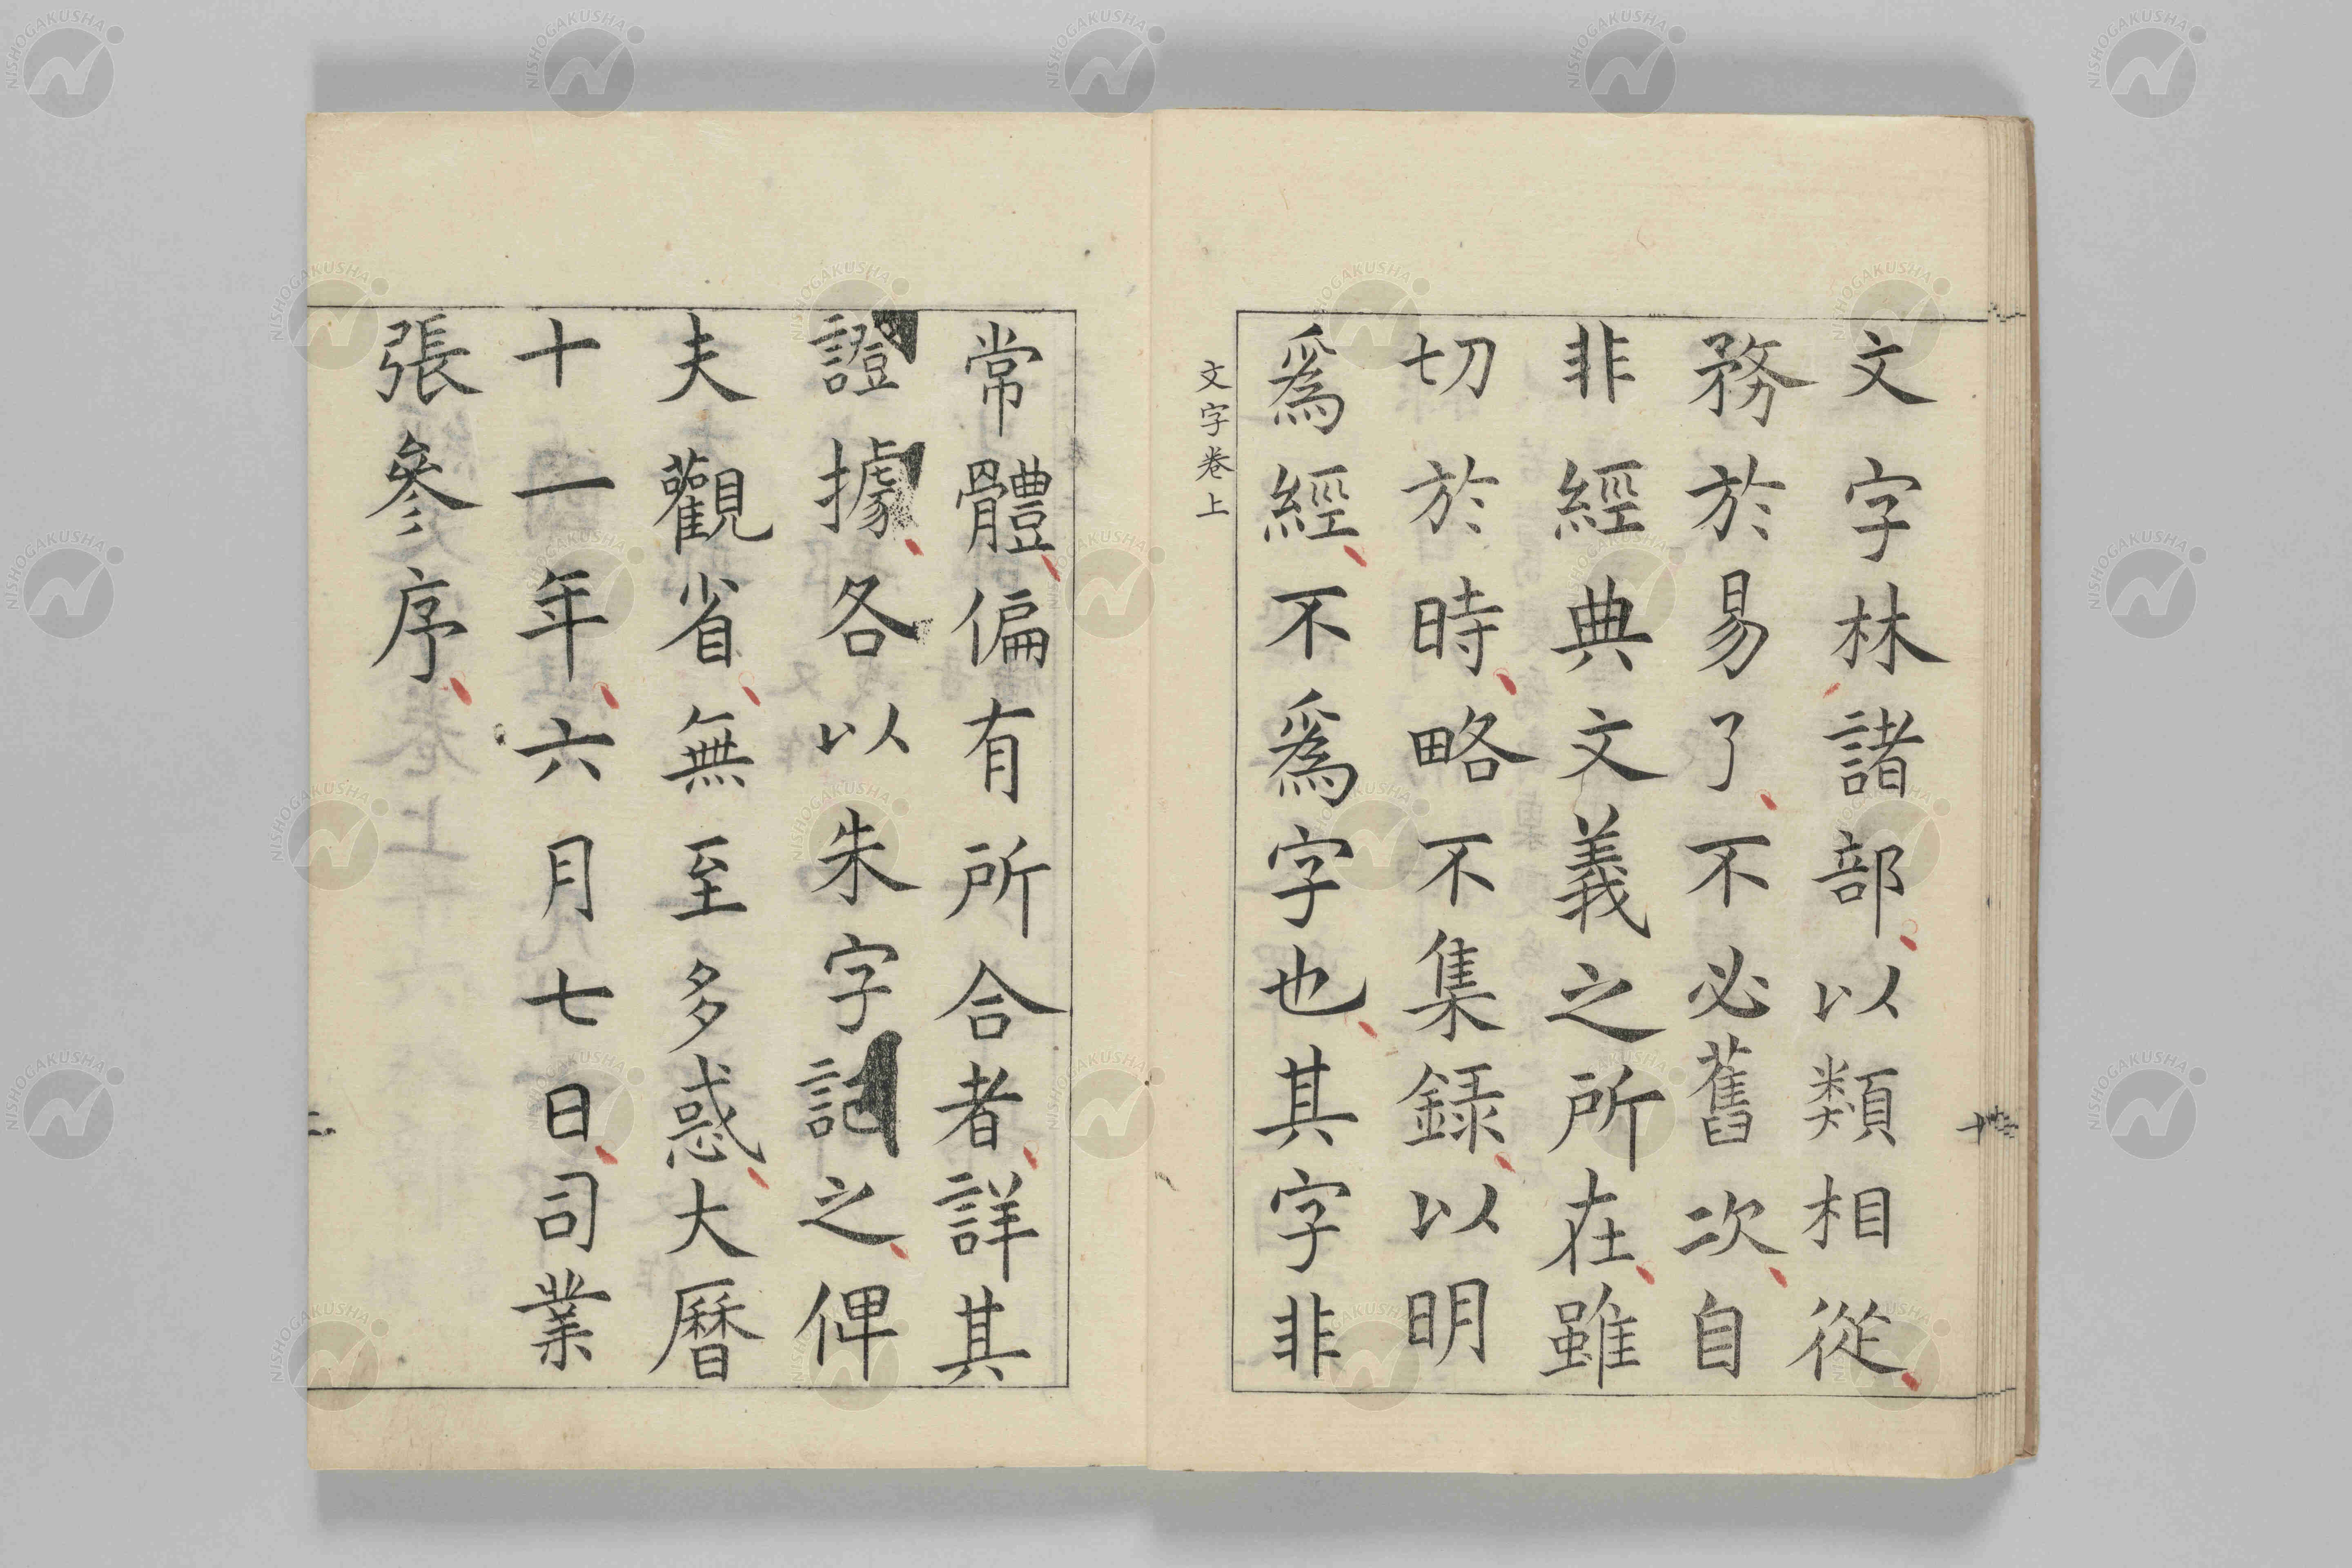 文字林諸部以類相從
務於易了不必舊次自
非經典文義之所在雖
切於時略不集録以明
爲經不爲字也其字非
文字卷上
常體偏有所合者詳其
證據各以朱字記之俾
夫觀省無至多惑大曆
十一年六月七日司業
張參序
NISHOGAKUSHA